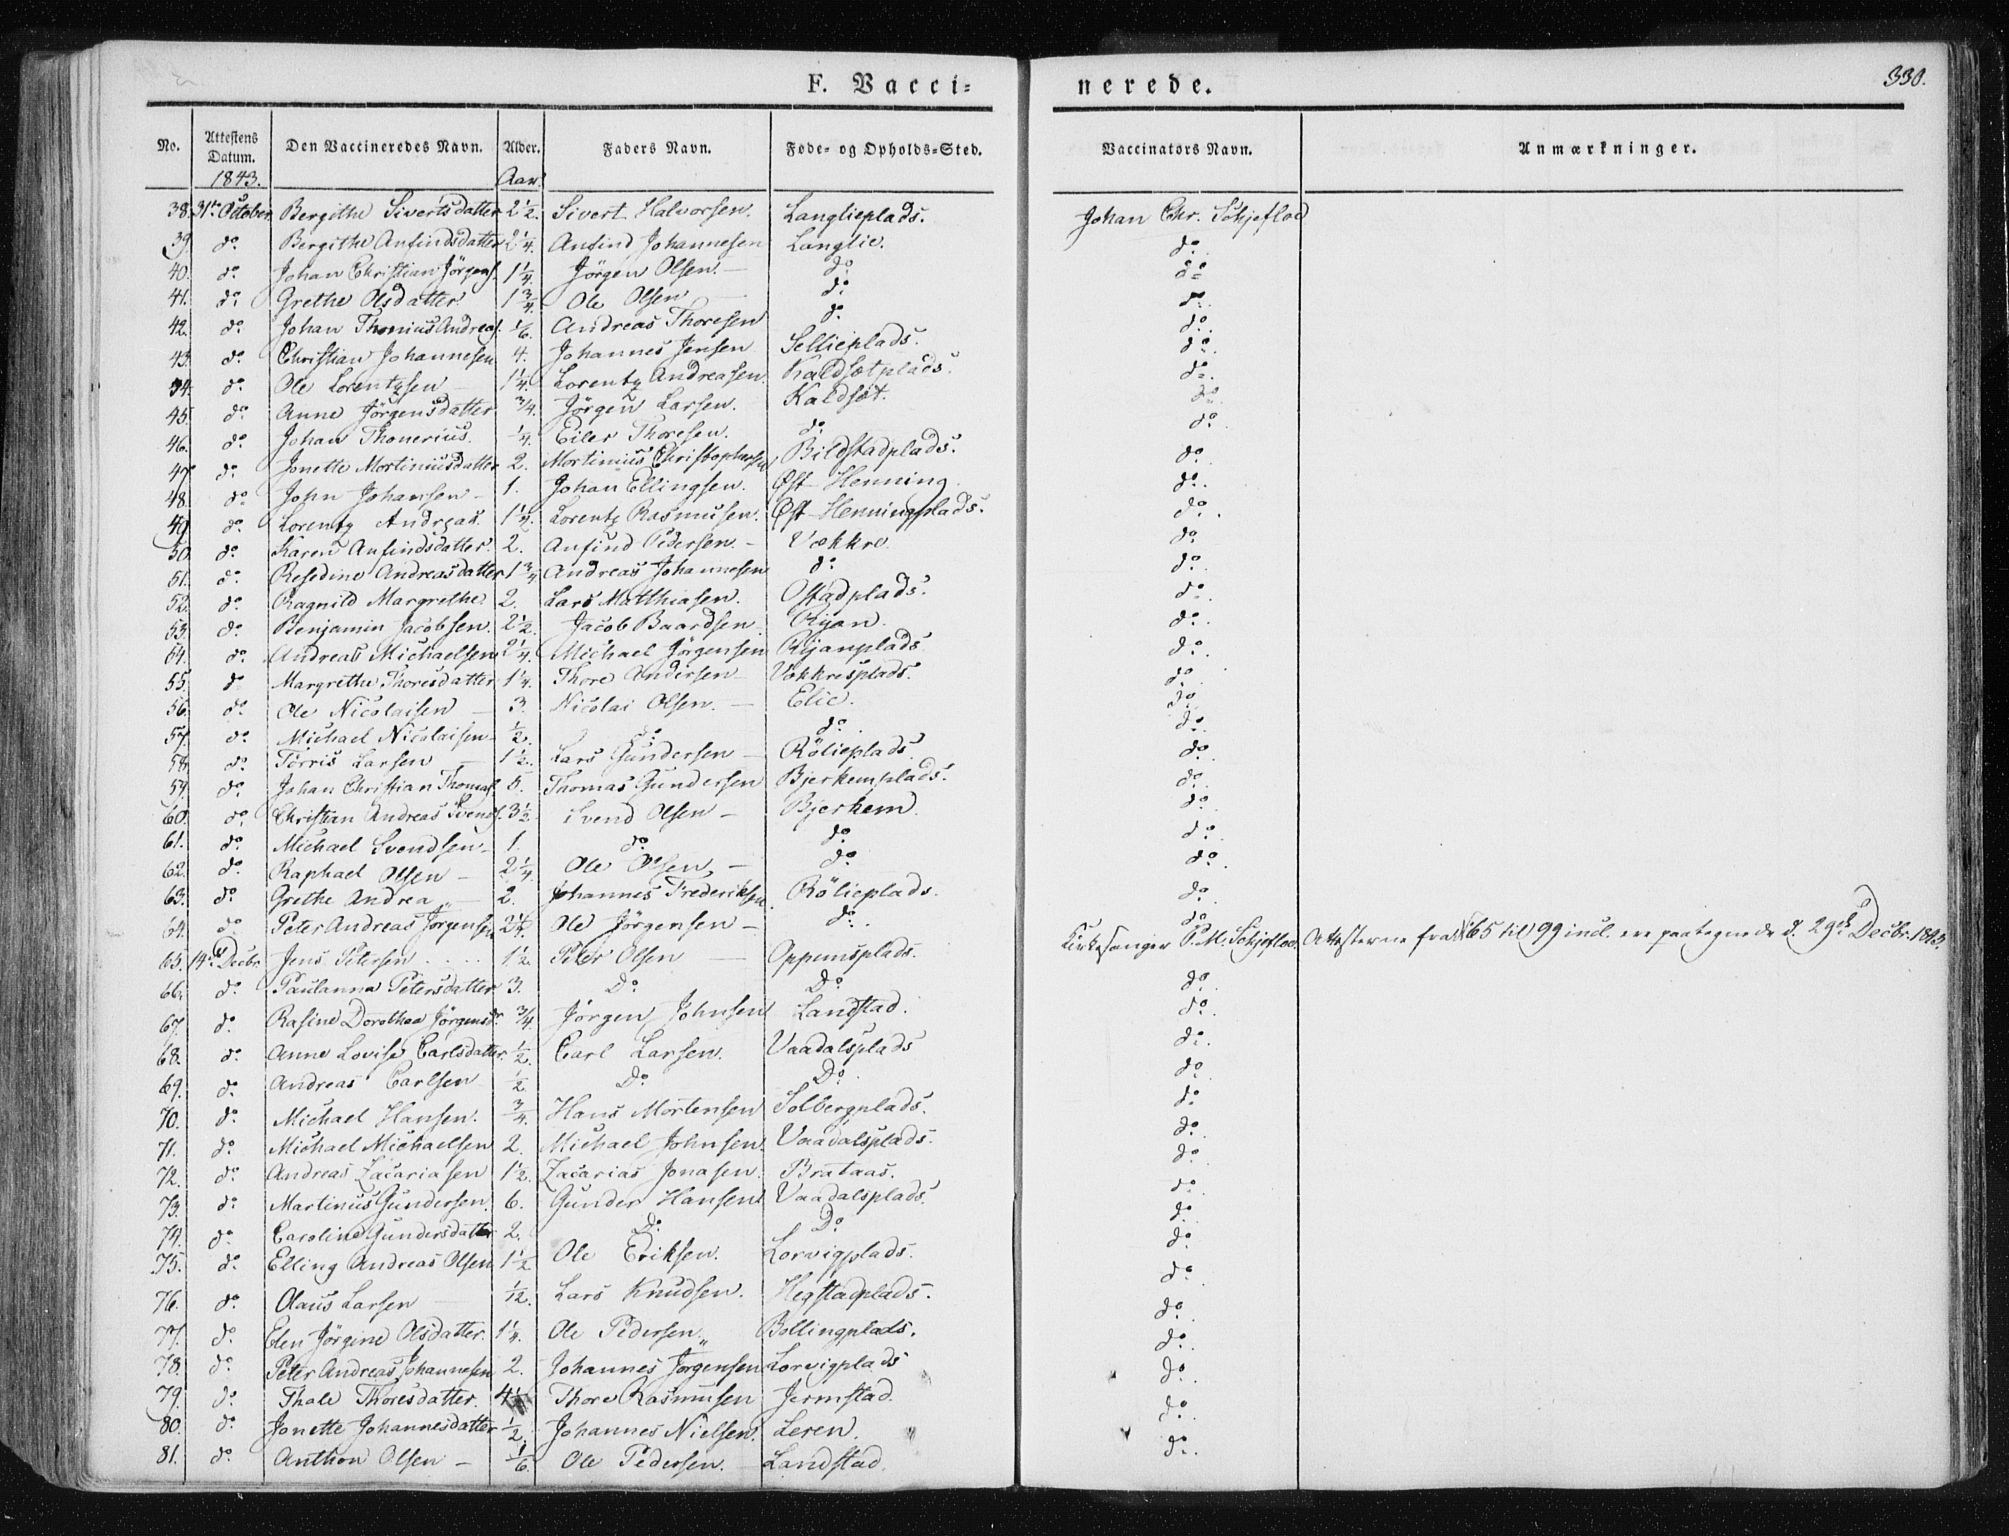 F. Vacci=
nerede.
330.
No. Attestens Datum. Den Vaccineredes Navn. Alder. Faders Navn. Føde- og Opholds-Sted. Vaccinators Navn. Anmærkninger.
1843. Aar.
38. 31te October Bergithe Sivertsdatter 2½. Sivert Halvorsen. Langlieplads. Johan Chr. Schjeflod
39. do. Bergithe Anfindsdatter 2¼. Anfind Johannesen Langlie. do.
40. do. Johan Christian Jörgens. 1¼. Jörgen Olsen. — do. do.
41. do. Grethe Olsdatter 1¾. Ole Olsen — do. do.
42. do. Johan Thonius Andreas. 1/6. Andreas Thoresen do. do.
43. do. Christian Johannesen 4. Johannes Jensen Sellieplads. do.
44. do. Ole Lorentzsen — 1¼. Lorentz Andreasen Kaldsetplads. do.
45. do. Anne Jörgensdatter ¾. Jörgen Larsen. Kaldset. do.
46. do. Johan Thonerius. ¼. Eiler Thoresen. do. do.
47. do. Jonette Mortiniusdatter 2. Mortinius Christophersen Bildstadplads. do.
48. do. John Johansen — 1. Johan Ellingsen. Øst-Henning. do.
49. do. Lorentz Andreas. 1½. Lorentz Rasmusen. Øst-Henningplads. do.
50. do. Karen Anfindsdatter. 2. Anfind Pedersen. — Vekkre. do.
51. do. Resedine Andreasdatter 1¾ Andreas Johannesen do. do.
52. do. Ragnild Margrethe. 2. Lars Matthiasen. Ostadplads. do.
53. do. Benjamin Jacobsen. 2½. Jacob Baardsen Ryan. do.
54. do. Andreas Michaelsen 2¼. Michael Jörgensen Ryanplads do.
55. do Margrethe Thoresdatter 1¼. Thore Andersen Vekkresplads. do.
56. do. Ole Nicolaisen — 3. Nicolai Olsen. — Elie. do.
57. do. Michael Nicolaisen ½. do. do. do.
58. do. Törris Larsen — 1½. Lars Gundersen — Rölieplads do.
59. do. Johan Christian Thomas. 5. Thomas Gundersen Bjerkemplads. do.
60. do. Christian Andreas Svends. 3½. Svend Olsen — Bjerkem. do.
61. do. Michael Svendsen 1. do. do. do.
62. do. Raphael Olsen — 2¼. Ole Olsen, — do. do.
63. do. Grethe Andrea „ — 2. Johannes Frederiksen Rölieplads. do.
64. do. Peter Andreas Jörgensen 2¼. Ole Jörgensen — do. do.
65. 14de Decbr. Jens Petersen .... 1½. Peter Olsen — Oppemsplads. Kirkesanger P. M. Schjeflod. Attesterne fra 65 til 99 incl. ere paategnede d. 29de Decbr. 1843.
66. do. Paulanna Petersdatter 3. Do. Do. do.
67. do. Rasine Dorothea Jörgensdr. ¾. Jörgen Johnsen Landstad. do.
68. do. Anne Lovise Carlsdatter ½. Carl Larsen. Vaadalsplads do.
69. do. Andreas Carlsen ½. Do. Do. do.
70. do. Michael Hansen. ¾. Hans Mortensen Solbergplads. do.
71. do. Michael Michaelsen 2. Michael Johnsen. Vaadalsplads. do.
72. do. Andreas Zacariasen 1½. Zacarias Jonasen. Brataas. do.
73. do. Martinus Gundersen. 6. Gunder Hansen Vaadalsplads. do.
74. do. Caroline Gundersdatter 2. Do. Do. do.
75. do. Elling Andreas Olsen 1½ Ole Eriksen. Lorvigplads. do.
76. do. Olaus Larsen — 1/12. Lars Knudsen. Hegstadplads. do.
77. do. Elen Jörgine Olsdatter. 1¼. Ole Pedersen „ Bollingplads. do.
78. do. Peter Andreas Johannesen 2. Johannes Jörgensen Lorvigplads do.
79. do. Thale Thoresdatter. 4 Thore Rasmusen Jermstad. do.
80. do. Jonette Johannesdatter ½. Johannes Nielsen. Leren. do.
81. do. Anthon Olsen — 1/6. Ole Pedersen. — Landstad. do.